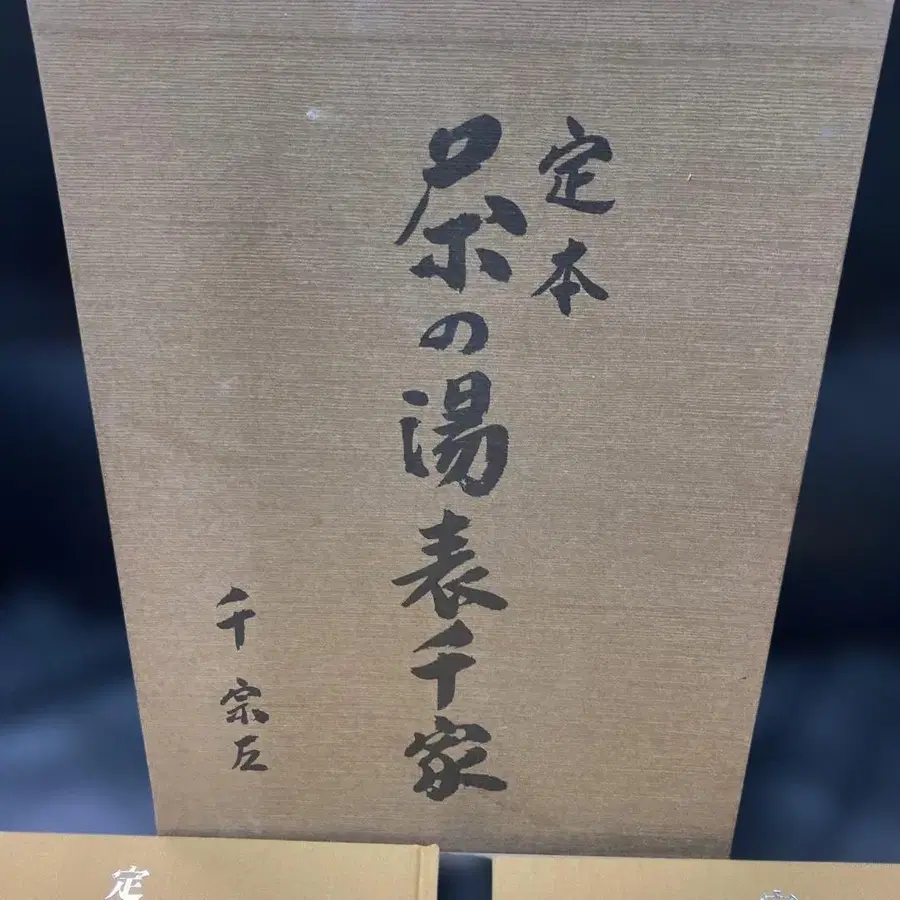 定本
茶の湯表千家
千宗左
定